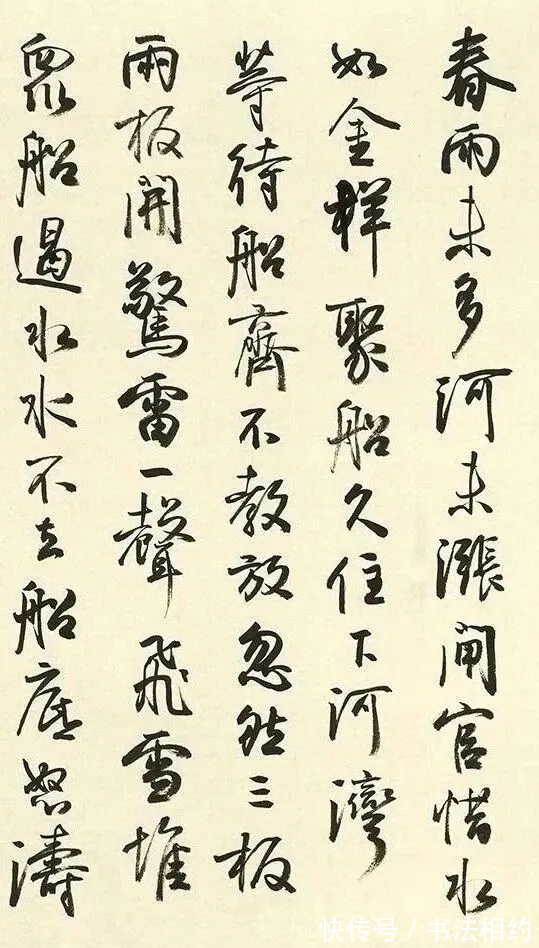 春雨未多河未漲閘官惜水
如金樣聚船久住下河灣
等待船齊不教放忽然三板
兩板開驚雷一聲飛雪堆
眾船遏水水不去船底怒濤
快传号/书法相约